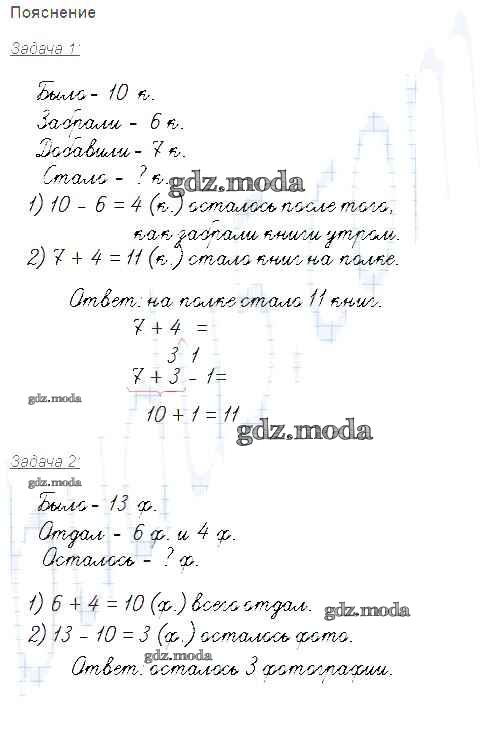 Пояснение
Задача 1:
Было - 10 к.
Забрали - 6 к.
Добавили - 7 к.
Стало - ? к.
gdz.moda
1) 10 - 6 = 4 (к.) осталось после того,
как забрали книги утром.
2) 7 + 4 = 11 (к.) стало книг на полке.
Ответ: на полке стало 11 книг.
7 + 4 =
3 1
7 + 3 - 1=
gdz.moda
10 + 1 = 11
gdz.moda
Задача 2:
gdz.moda
Было - 13 ф.
Отдал - 6 ф. и 4 ф.
Осталось - ? ф.
1) 6 + 4 = 10 (ф.) всего отдал.
gdz.moda
2) 13 - 10 = 3 (ф.) осталось фото.
gdz.moda
Ответ: осталось 3 фотографии.